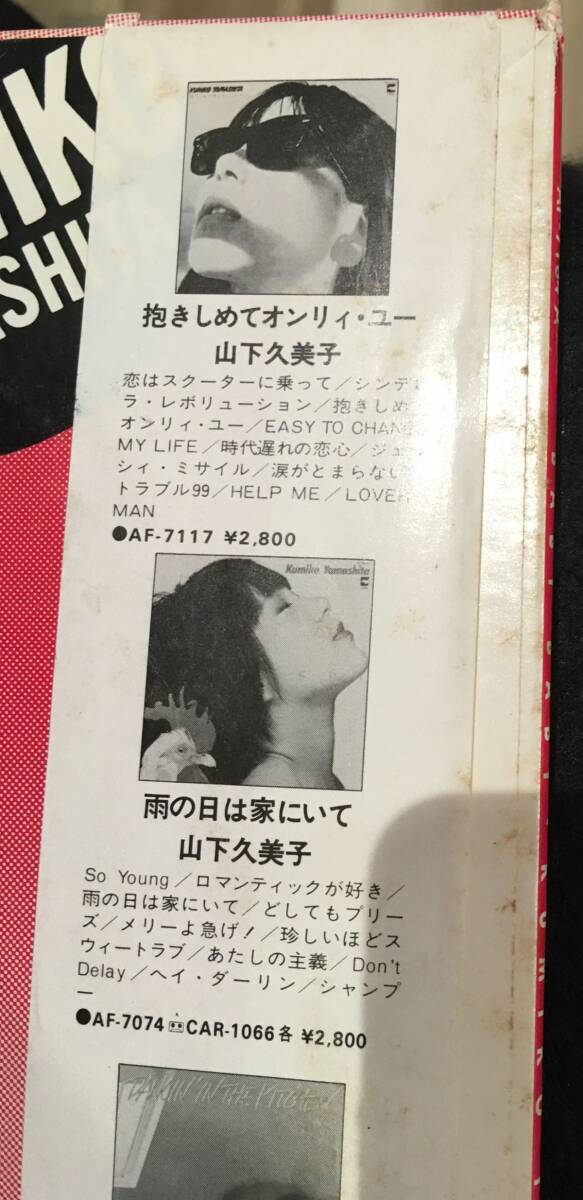 KUMIKO YAMASHITA
抱きしめてオンリィ・ユー
山下久美子
恋はスクーターに乗って／シンデ
ラ・レボリューション／抱きしめ
オンリィ・ユー／EASY TO CHAN
MY LIFE／時代遅れの恋心／ジュ
シィ・ミサイル／涙がとまらない
トラブル99／HELP ME／LOVER
MAN
●AF-7117 ¥2,800
Kumiko Yamashita
雨の日は家にいて
山下久美子
So Young／ロマンティックが好き／
雨の日は家にいて／どしてもプリー
ズ／メリーよ急げ！／珍しいほどス
ウィートラブ／あたしの主義／Don't
Delay／ヘイ・ダーリン／シャンプ
ー
●AF-7074 CAR-1066各 ¥2,800
TALKIN' IN THE KITCHEN
BABY BABY KUMIKO